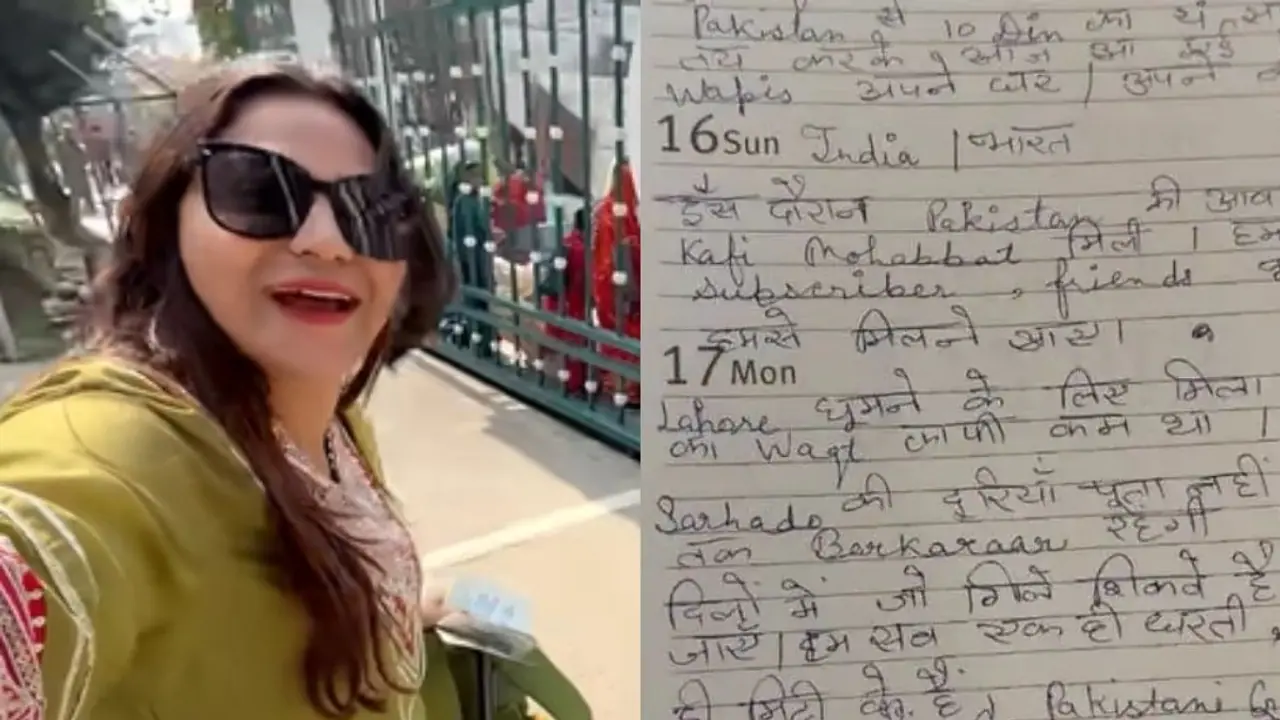 Pakistan से 10 Din का
तय करके, आज आ गई
Wapis अपने घर | अपने
16 Sun India | भारत
इस दौरान Pakistan की आव
Kafi Mohabbat मिली । हम
subscriber, friends
हमसे मिलने आए।
17 Mon
Lahore घूमने के लिए मिला
का Waqt काफी कम था ।
Sarhado की दूरियाँ पता नहीं
तक Barkaraar रहेगी
दिलों में जो गिले शिकवे है
जाएँ | हम सब एक ही धरती
ही मिट्टी के है Pakistani